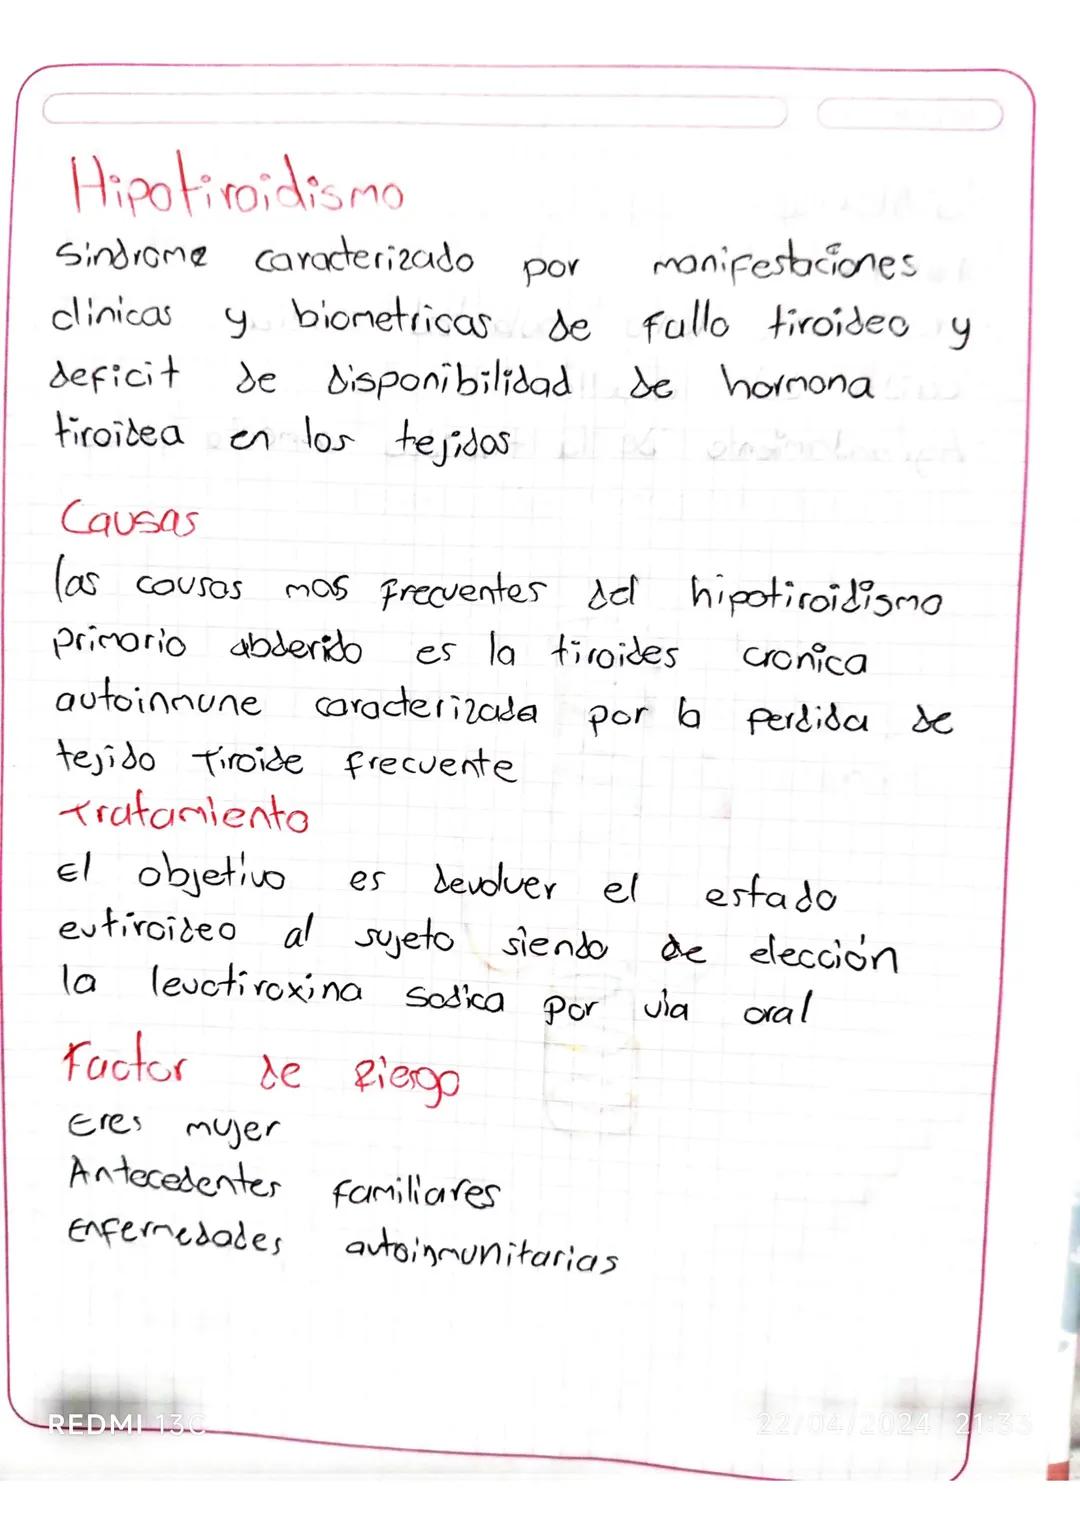 Hipotiroidismo
Sindrome caracterizado por manifestaciones
clinicas y biometricas de fallo tiroideo y
deficit de disponibilidad de hormona
tiroidea en los tejidos
Causas
las causas mas frecuentes del hipotiroidismo
primario abderido es la tiroides cronica
autoinmune caracterizada por la perdida de
tejido tiroide frecuente
tratamiento
El objetivo es devolver el estado
eutiroideo al sujeto siendo de elección
la levotiroxina sodica por via oral
Factor de Riesgo
Eres mujer
Antecedentes familiares
Enfermedades autoinmunitarias
REDMI 13C
22/04/2024 21:33